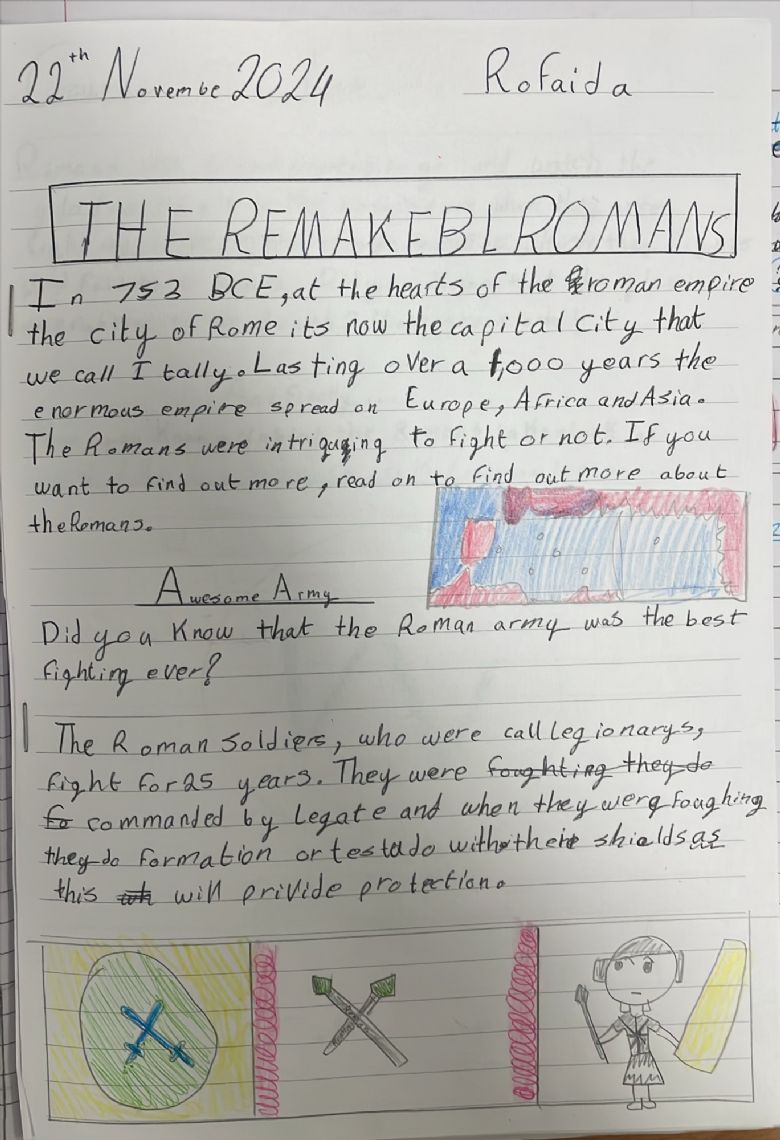 22th Novembe 2024 Rofaida
THE REMAKEBLROMANS
In 753 BCE, at the hearts of the roman empire
the city of Rome its now the capital city that
we call Itally. Lasting over a 1,000 years the
enormous empire spread on Europe, Africa and Asia.
The Romans were intriguging to fight or not. If you
want to find out more, read on to find out more about
the Romans.
Awesome Army
Did you know that the Roman army was the best
fighting ever?
The Roman soldiers, who were call legionarys,
fight for 25 years. They were foughting they do
fo commanded by legate and when they were foughing
they do formation or testudo with their shields as
this will privide protection.